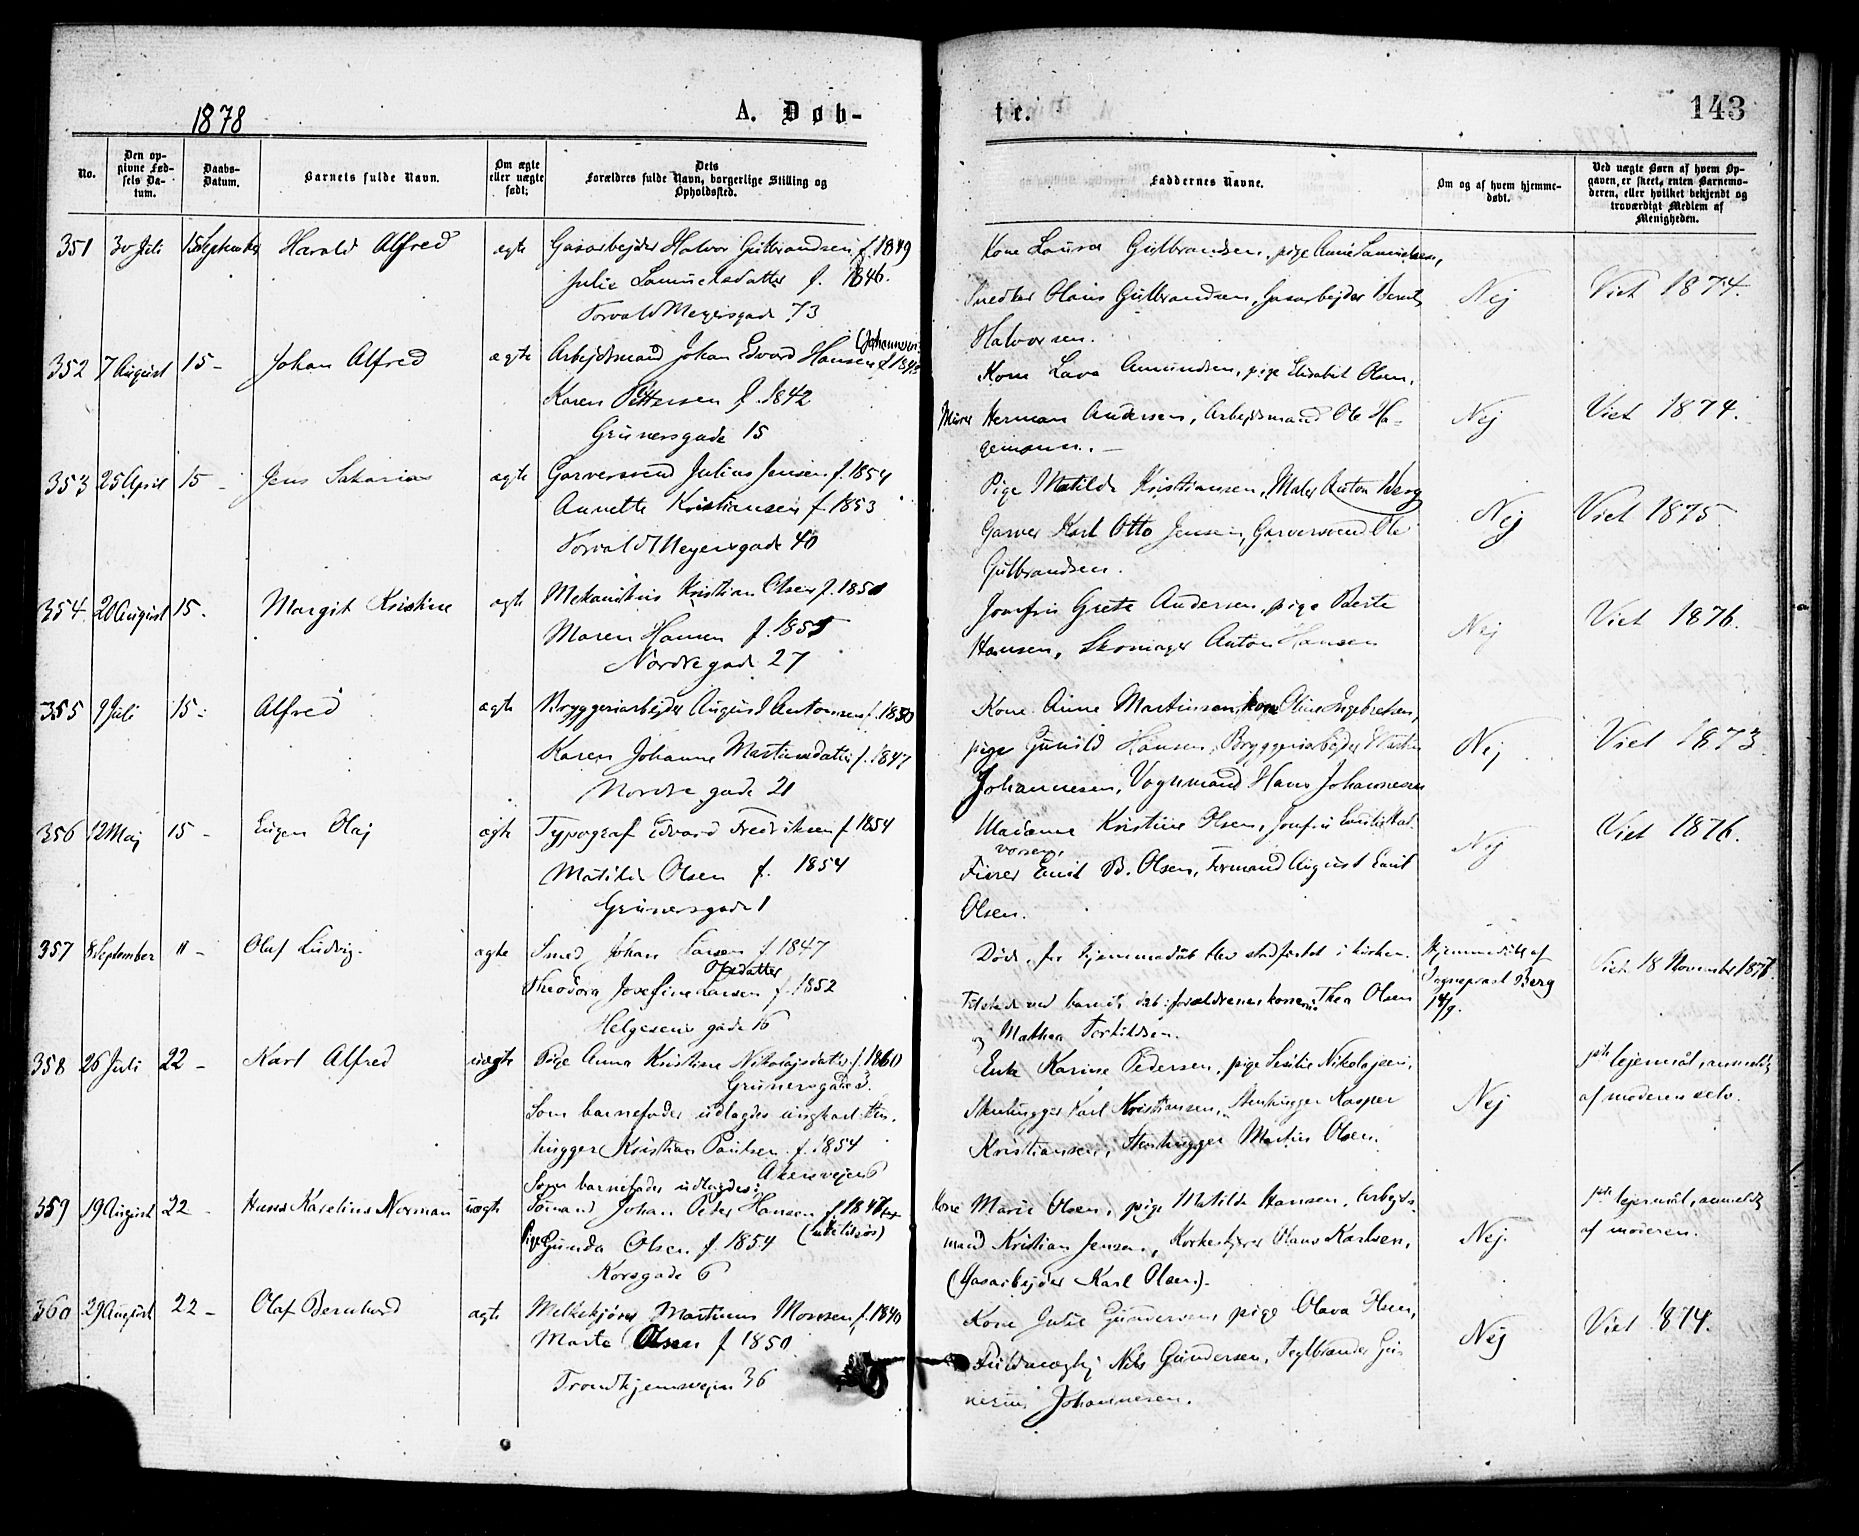 1878
A. Døb-
te.
143
No.
Den op-
givne Fød-
sels Da-
tum.
Daabs-
Datum.
Barnets fulde Navn.
Om ægte
eller uægte
født;
Dets
Forældres fulde Navn, borgerlige Stilling og
Opholdsfted.
Faddernes Navne.
Om og af hvem hjemme-
døbt.
Ved uægte Børn af hvem Op-
gaven er skeet, enten Barnemo-
deren, eller hvilket bekjendt og
troværdigt Medlem af
Menigheden.
351 30 Juli 15 September Harald Alfred ægte Gasarbejder Halvor Gulbrandsen f. 1849
Julie Samuelsdatter f. 1846.
Torvald Meyersgade 73
Kone Laura Gulbrandsen, pige Anne Samuelsen,
Snedker Olaus Gulbrandsen, Gasarbejder Bernt
Halvorsen.
Nej
Viet 1874.
352 7 August 15 - Johan Alfred ægte Arbejdsmand Johan Edvard Hansen (Johannesen)
Karen Pettersen f. 1842
Grünersgade 15
Kone Lava Amundsen, pige Elisabet Olsen,
Murer Herman Andersen, Arbejdsmand Ole Ha-
gemann. -
Nej
Viet 1874.
353 25 April 15 - Jens Sakarias ægte Garversvend Julius Jensen f. 1854
Annette Kristiansen f. 1853
Torvald Meyersgade 40
Pige Matilde Kristiansen, Maler Anton Berg
Garver Karl Otto Jensen, Garversvend Ole
Gulbrandsen.
Nej
Viet 1875
354 20 August 15. Margit Kristine ægte Mekanikus Kristian Olsen f. 1850
Maren Hansen f. 1855
Nordregade 27
Jomfru Grete Andersen, pige Berte
Hansen, Skomager Anton Hansen
Nej
Viet 1876.
355 9 Juli 15 - Alfred ægte Bryggeriarbejder August Antonsen f. 1850
Karen Johanne Martinsdatter f. 1847
Nordre gade 21
Kone Anne Martinsen, kone Oline Ingebretsen,
pige Gunild Hansen, Bryggeriarbejder Martin
Johannesen, Vognmand Hans Johannesen
Nej
Viet 1873
356 12 Maj 15 - Eugen Olaf ægte Typograf Edvard Fredriksen f. 1854
Matilde Olsen f. 1854
Grünersgade 1
Madame Kristine Olsen, Jomfru Emilie Hal-
vorsen,
Emil B. Olsen, Formand August Emil
Olsen.
Nej
Viet 1876.
357 8 September 11 - Olaf Ludvig. ægte Smed Johan Larsen f. 1847
Olsdatter
Theodora Josefine Larsen f. 1852
Helgesens gade 16
Døde, før hjemmedåb blev stadfæstet i kirken.
Tilstede ved barnets dåb: forældrene, konerne Thea Olsen
og Mathea Torkildsen.
Hjemmedøbt af
Sogneprest Berg
11/9.
Viet 18 November 187
358 26 Juli 22 - Karl Alfred uægte Pige Anna Kristine Nikolajsdatter f. 1860
Grünersgade 3.
Som barnefader udlagdes ungkarl Sten-
hugger Kristian Paulsen f. 1854
Akersvejen 6
Enke Karine Pedersen, pige Nikolajsen,
Stenhugger Karl Kristiansen, Stenhugger Kasper
Kristiansen, Stenhugger Martin Olsen.
Nej
1ste lejermål, anmeldt
af moderen selv.
359 19 August 22 - Hans Karelius Norman uægte Som barnefader udlagdes:
Sømand Johan Peter Hansen f. 1847
Pige Gunda Olsen f. 1854
Korsgade 6
Kone Marie Olsen, pige Matilde Hansen, Arbejds-
mand Kristian Jensen, Hans Karlsen,
(Gasarbejder Karl Olsen).
Nej.
1ste lejermål, anmeldt
af moderen.
360 29 August 22 - Olaf Bernhard ægte Melkekjører Martinus Monsen f. 1840
Marte Olsen f 1850
Trondhjemsvejen 36
Kone Julie Gundersen, pige Olava Olsen,
Fuldmægtig Nils Gundersen, Teglbrænder Gu-
nerius Johannesen.
Nej
Viet 1874.